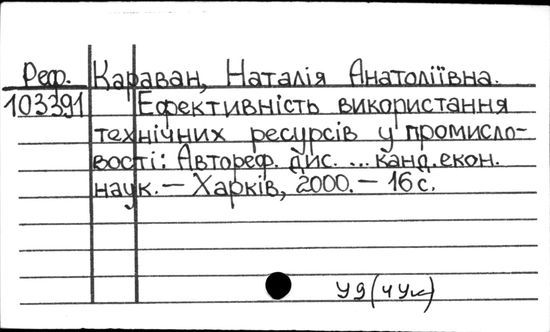 Реф. Караван, Наталія Анатоліївна.
103391 Ефективність використання
технічних ресурсів у промисло-
вості: Автореф. дис. ... канд. екон.
наук. — Харків, 2000. — 16 с.
У9(4Ук)